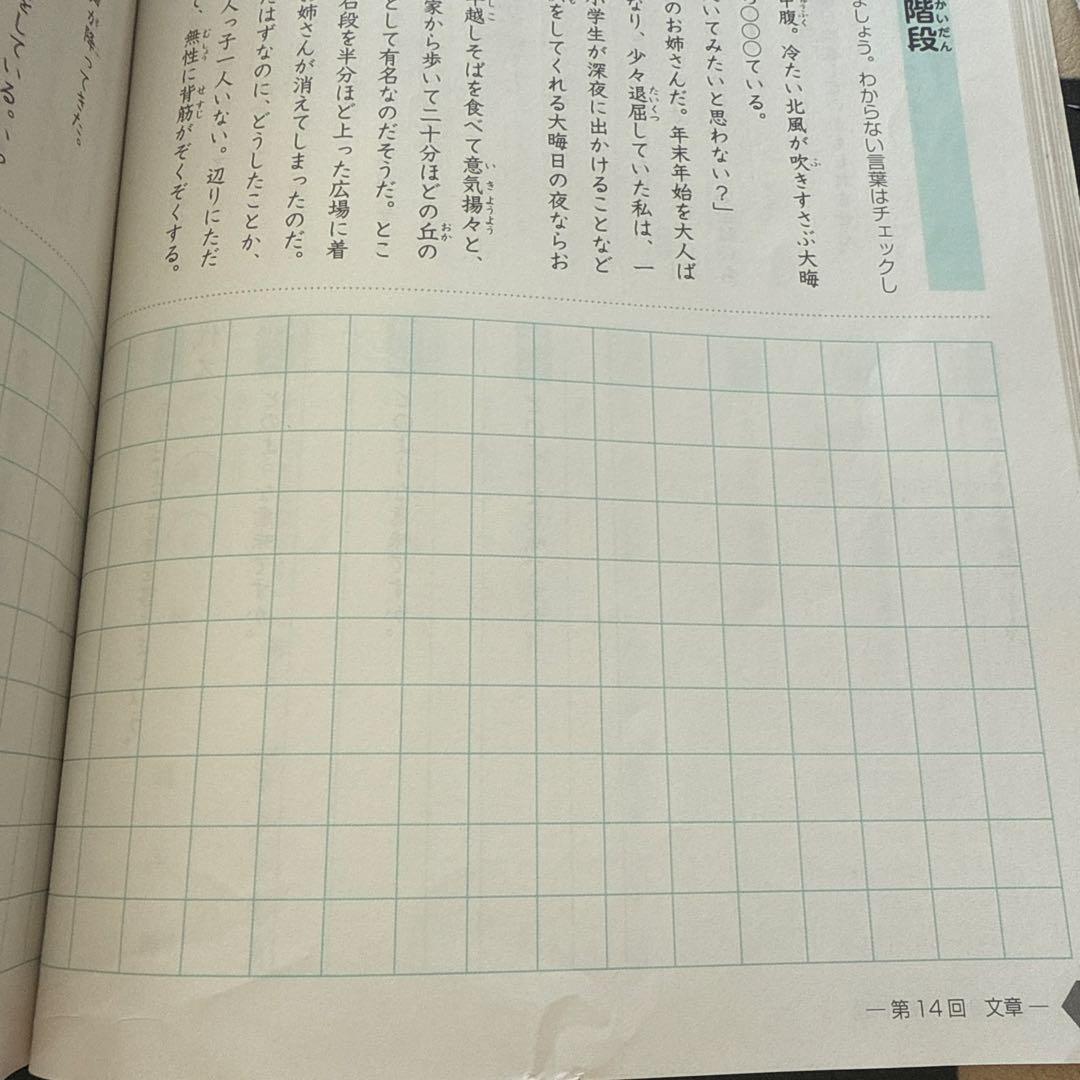 階段
かいだん
ましょう。わからない言葉はチェックし
中腹。冷たい北風が吹きすさぶ大晦
〇〇〇ている。
いてみたいと思わない？」
のお姉さんだ。年末年始を大人ば
なり、少々退屈していた私は、一
小学生が深夜に出かけることなど
をしてくれる大晦日の夜ならお
年越しそばを食べて意気揚々と、
家から歩いて二十分ほどの丘の
として有名なのだそうだ。とこ
石段を半分ほど上った広場に着
お姉さんが消えてしまったのだ。
たはずなのに、どうしたことか、
人っ子一人いない。辺りにただ
て、無性に背筋がぞくぞくする。
をしている。
第14回 文章